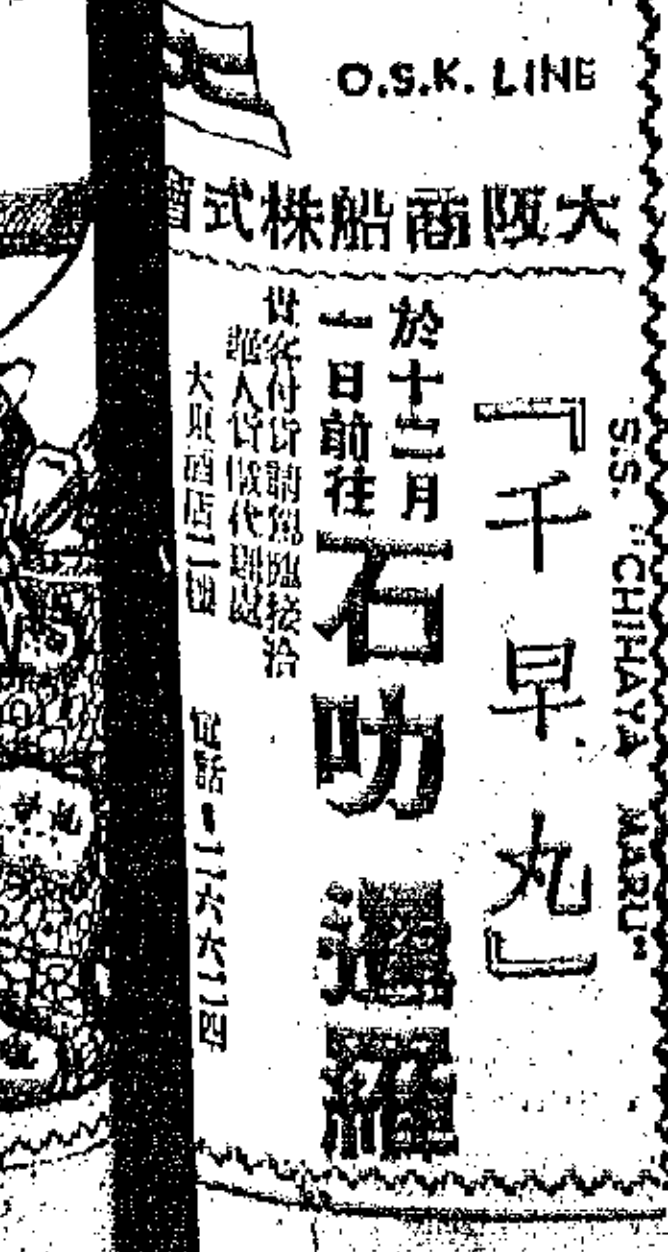 O.S.K. LINE
大阪商船株式會
S.S. "CHIHAYA MARU"
『千早丸』
於十二月
一日前往
石叻
暹羅
世客付貨請駕臨接洽
華人貨儎代理處
大東酒店二樓
電話